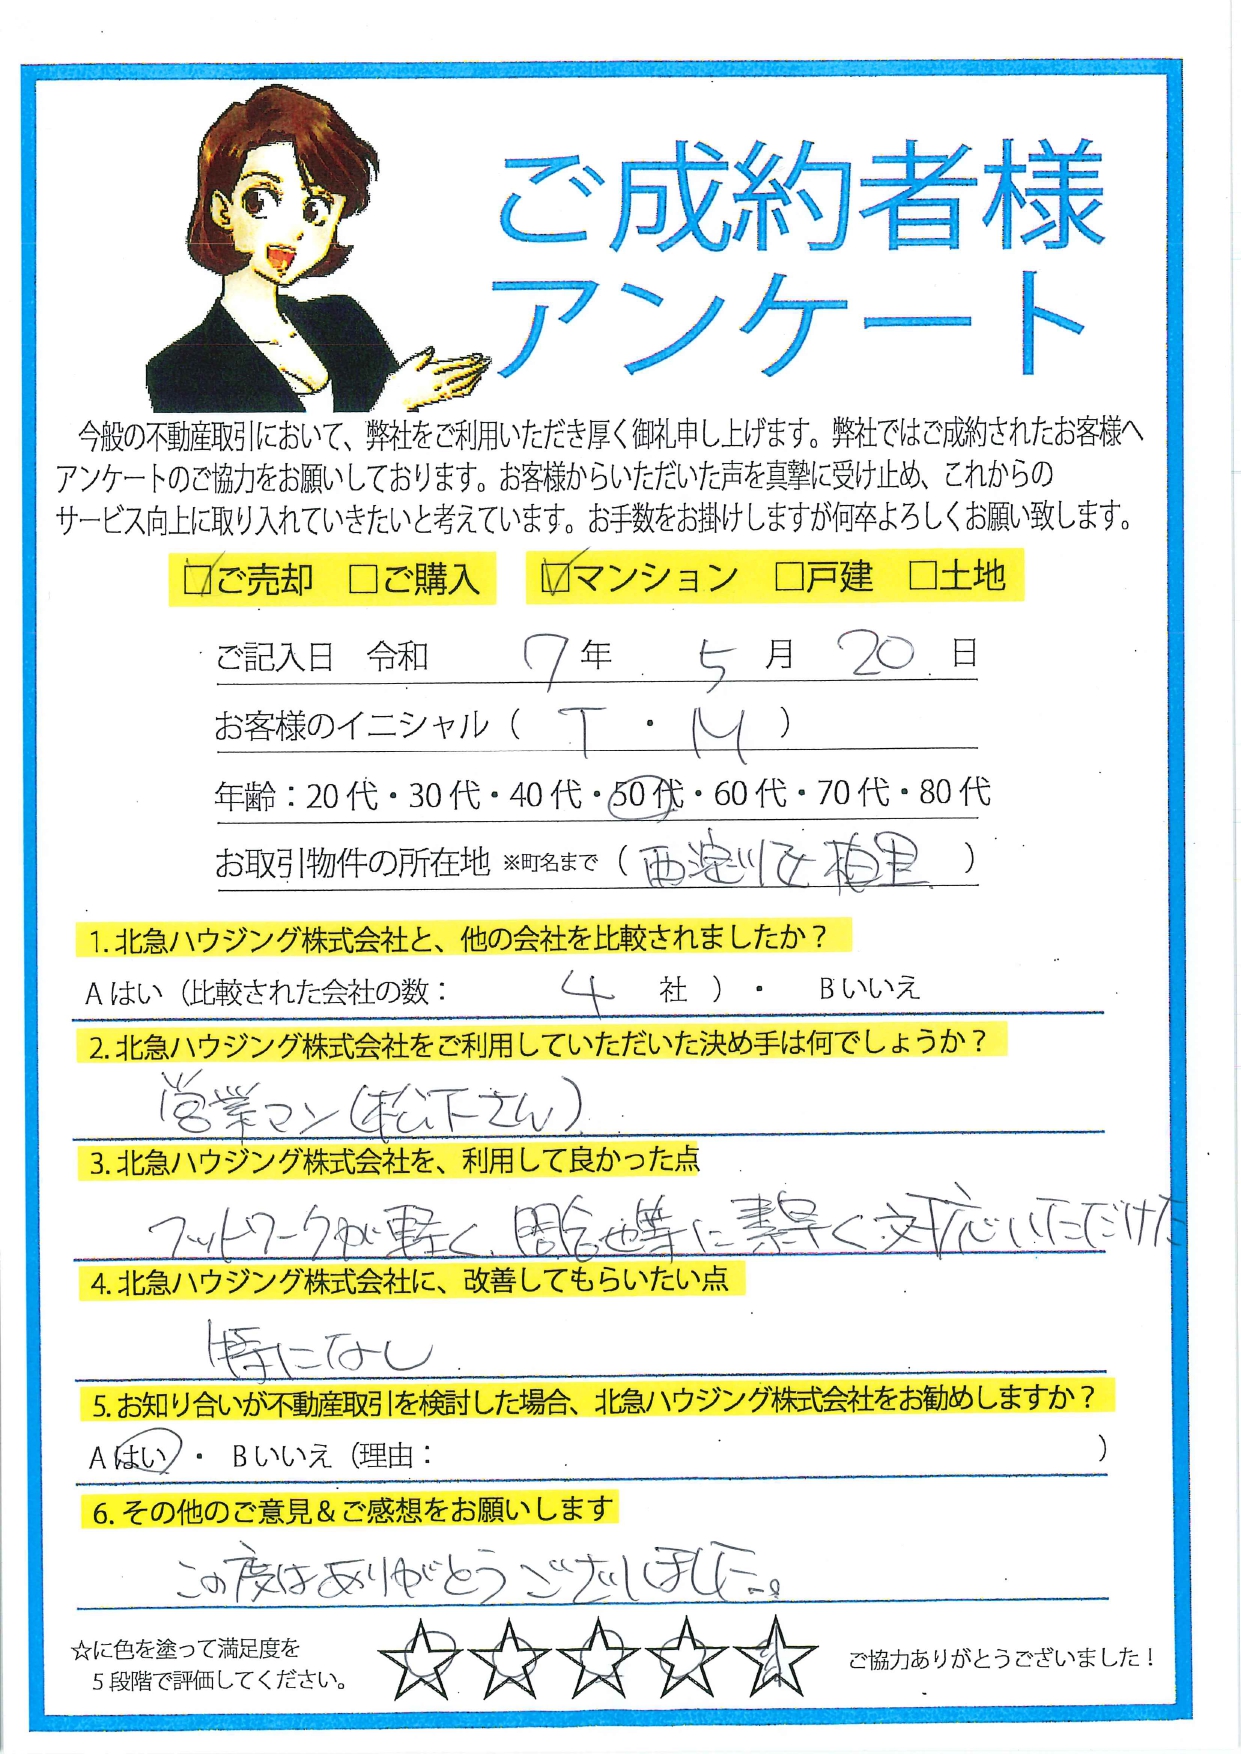 ご成約者様
アンケート
今般の不動産取引において、弊社をご利用いただき厚く御礼申し上げます。弊社ではご成約されたお客様へ
アンケートのご協力をお願いしております。お客様からいただいた声を真摯に受け止め、これからの
サービス向上に取り入れていきたいと考えています。お手数をお掛けしますが何卒よろしくお願い致します。
☑ご売却 □ご購入 ☑マンション □戸建 □土地
ご記入日 令和 7年 5月 20日
お客様のイニシャル（ T ・ M ）
年齢：20代・30代・40代・50代・60代・70代・80代
お取引物件の所在地 ※町名まで（西淀川区柏里）
1.北急ハウジング株式会社と、他の会社を比較されましたか？
Aはい（比較された会社の数： 4 社 ）・ Bいいえ
2.北急ハウジング株式会社をご利用していただいた決め手は何でしょうか？
営業マン(松下さん)
3.北急ハウジング株式会社を、利用して良かった点
フットワークが軽く、問合せ等に素早く対応いただけた
4.北急ハウジング株式会社に、改善してもらいたい点
特になし
5.お知り合いが不動産取引を検討した場合、北急ハウジング株式会社をお勧めしますか？
Aはい・ Bいいえ（理由： ）
6.その他のご意見＆ご感想をお願いします
この度はありがとうございました。
☆に色を塗って満足度を
5段階で評価してください。
☆☆☆☆☆
ご協力ありがとうございました！